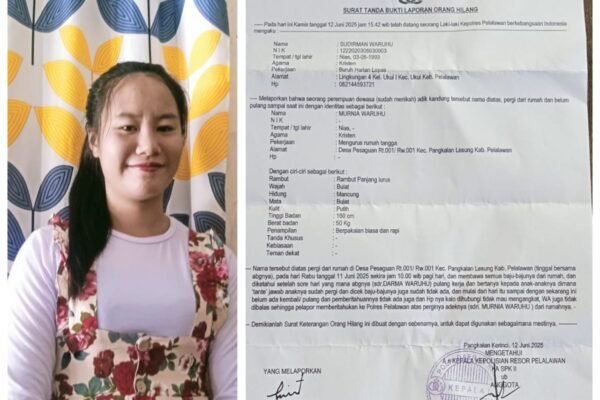 SURAT TANDA BUKTI LAPORAN ORANG HILANG
---- Pada hari ini Kamis tanggal 12 Juni 2025 jam 15.42 wib telah datang seorang Laki-laki Kepolres Pelalawan berkebangsaan Indonesia
mengaku :
Nama : SUDIRMAN WARUHU
N I K : 1222020306930003
Tempat / tgl lahir : Nias, 03-06-1993
Agama : Kristen
Pekerjaan : Buruh Harian Lepas
Alamat : Lingkungan 4 Kel. Ukui I Kec. Ukui Kab. Pelalawan
Hp : 082144593721
---- Melaporkan bahwa seorang perempuan dewasa (sudah menikah) adik kandung tersebut nama diatas, pergi dari rumah dan belum
pulang sampai saat ini dengan identitas sebagai berikut :
Nama : MURNIA WARUHU
N I K : -
Tempat / tgl lahir : Nias, -
Agama : Kristen
Pekerjaan : Mengurus rumah tangga
Alamat : Desa Pesaguan Rt.001/ Rw.001 Kec. Pangkalan Lesung Kab. Pelalawan
Hp : -
Dengan ciri-ciri sebagai berikut :
Rambut : Rambut Panjang lurus
Wajah : Bulat
Hidung : Mancung
Mata : Bulat
Kulit : Putih
Tinggi Badan : 160 cm
Berat badan : 50 Kg
Penampilan : Berpakaian biasa dan rapi
Tanda Khusus : -
Kebiasaan : -
Teman dekat : -
---- Nama tersebut diatas pergi dari rumah di Desa Pesaguan Rt.001/ Rw.001 Kec. Pangkalan Lesung Kab. Pelalawan (tinggal bersama
abgnya), pada hari Rabu tanggal 11 Juni 2025 sekira jam 10.00 wib pagi hari, dan membawa semua baju-bajunya dari rumah, dan
diketahui setelah sore hari yang mana abgnya (sdr.DARMA WARUHU) pulang kerja dan bertanya kepada anak-anaknya dimana
'tante' jawab anaknya sudah pergi dan dicek baju-bajunya juga sudah tidak ada, dan mulai dari hari itu sampai dengan sekarang ini
belum ada kembali/ pulang dan pemberitahuannya tidak ada juga dan Hp nya kalo dihubungi tidak mau mengangkat, WA juga tidak
dibalas sehingga pelapor memberitahukan ke Polres Pelalawan atas perginya adeknya (sdri. MURNIA WARUHU ) dari rumahnya. -
---- Demikianlah Surat Keterangan Orang Hilang ini dibuat dengan sebenarnya, untuk dapat digunakan sebagaimana mestinya. ----
Pangkalan Kerinci, 12 Juni 2025
MENGETAHUI
KEPALA KEPOLISIAN RESOR PELALAWAN
KA SPK II
ub
ANGGOTA
YANG MELAPORKAN
KEPALA